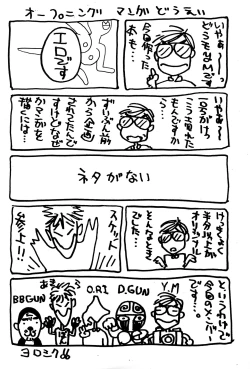 オープニング マンガ どうえい
いやぁー
どうもY.Mです
今回作った
本も…
エロです
いやぁー
1号がけっ
こう売れた
もんですか
ら企画
されてたんで
すけどなぜ
かマンガを
描くには…
ネタがない
けっきょく
半分以上が
オリジナル
そんなとき
でした…
スケット
参上!!
というわけで
今回のメンバー
です…。
Y.M
D.GUN
O.RI
あきら
BBGUN
ヨロシクね